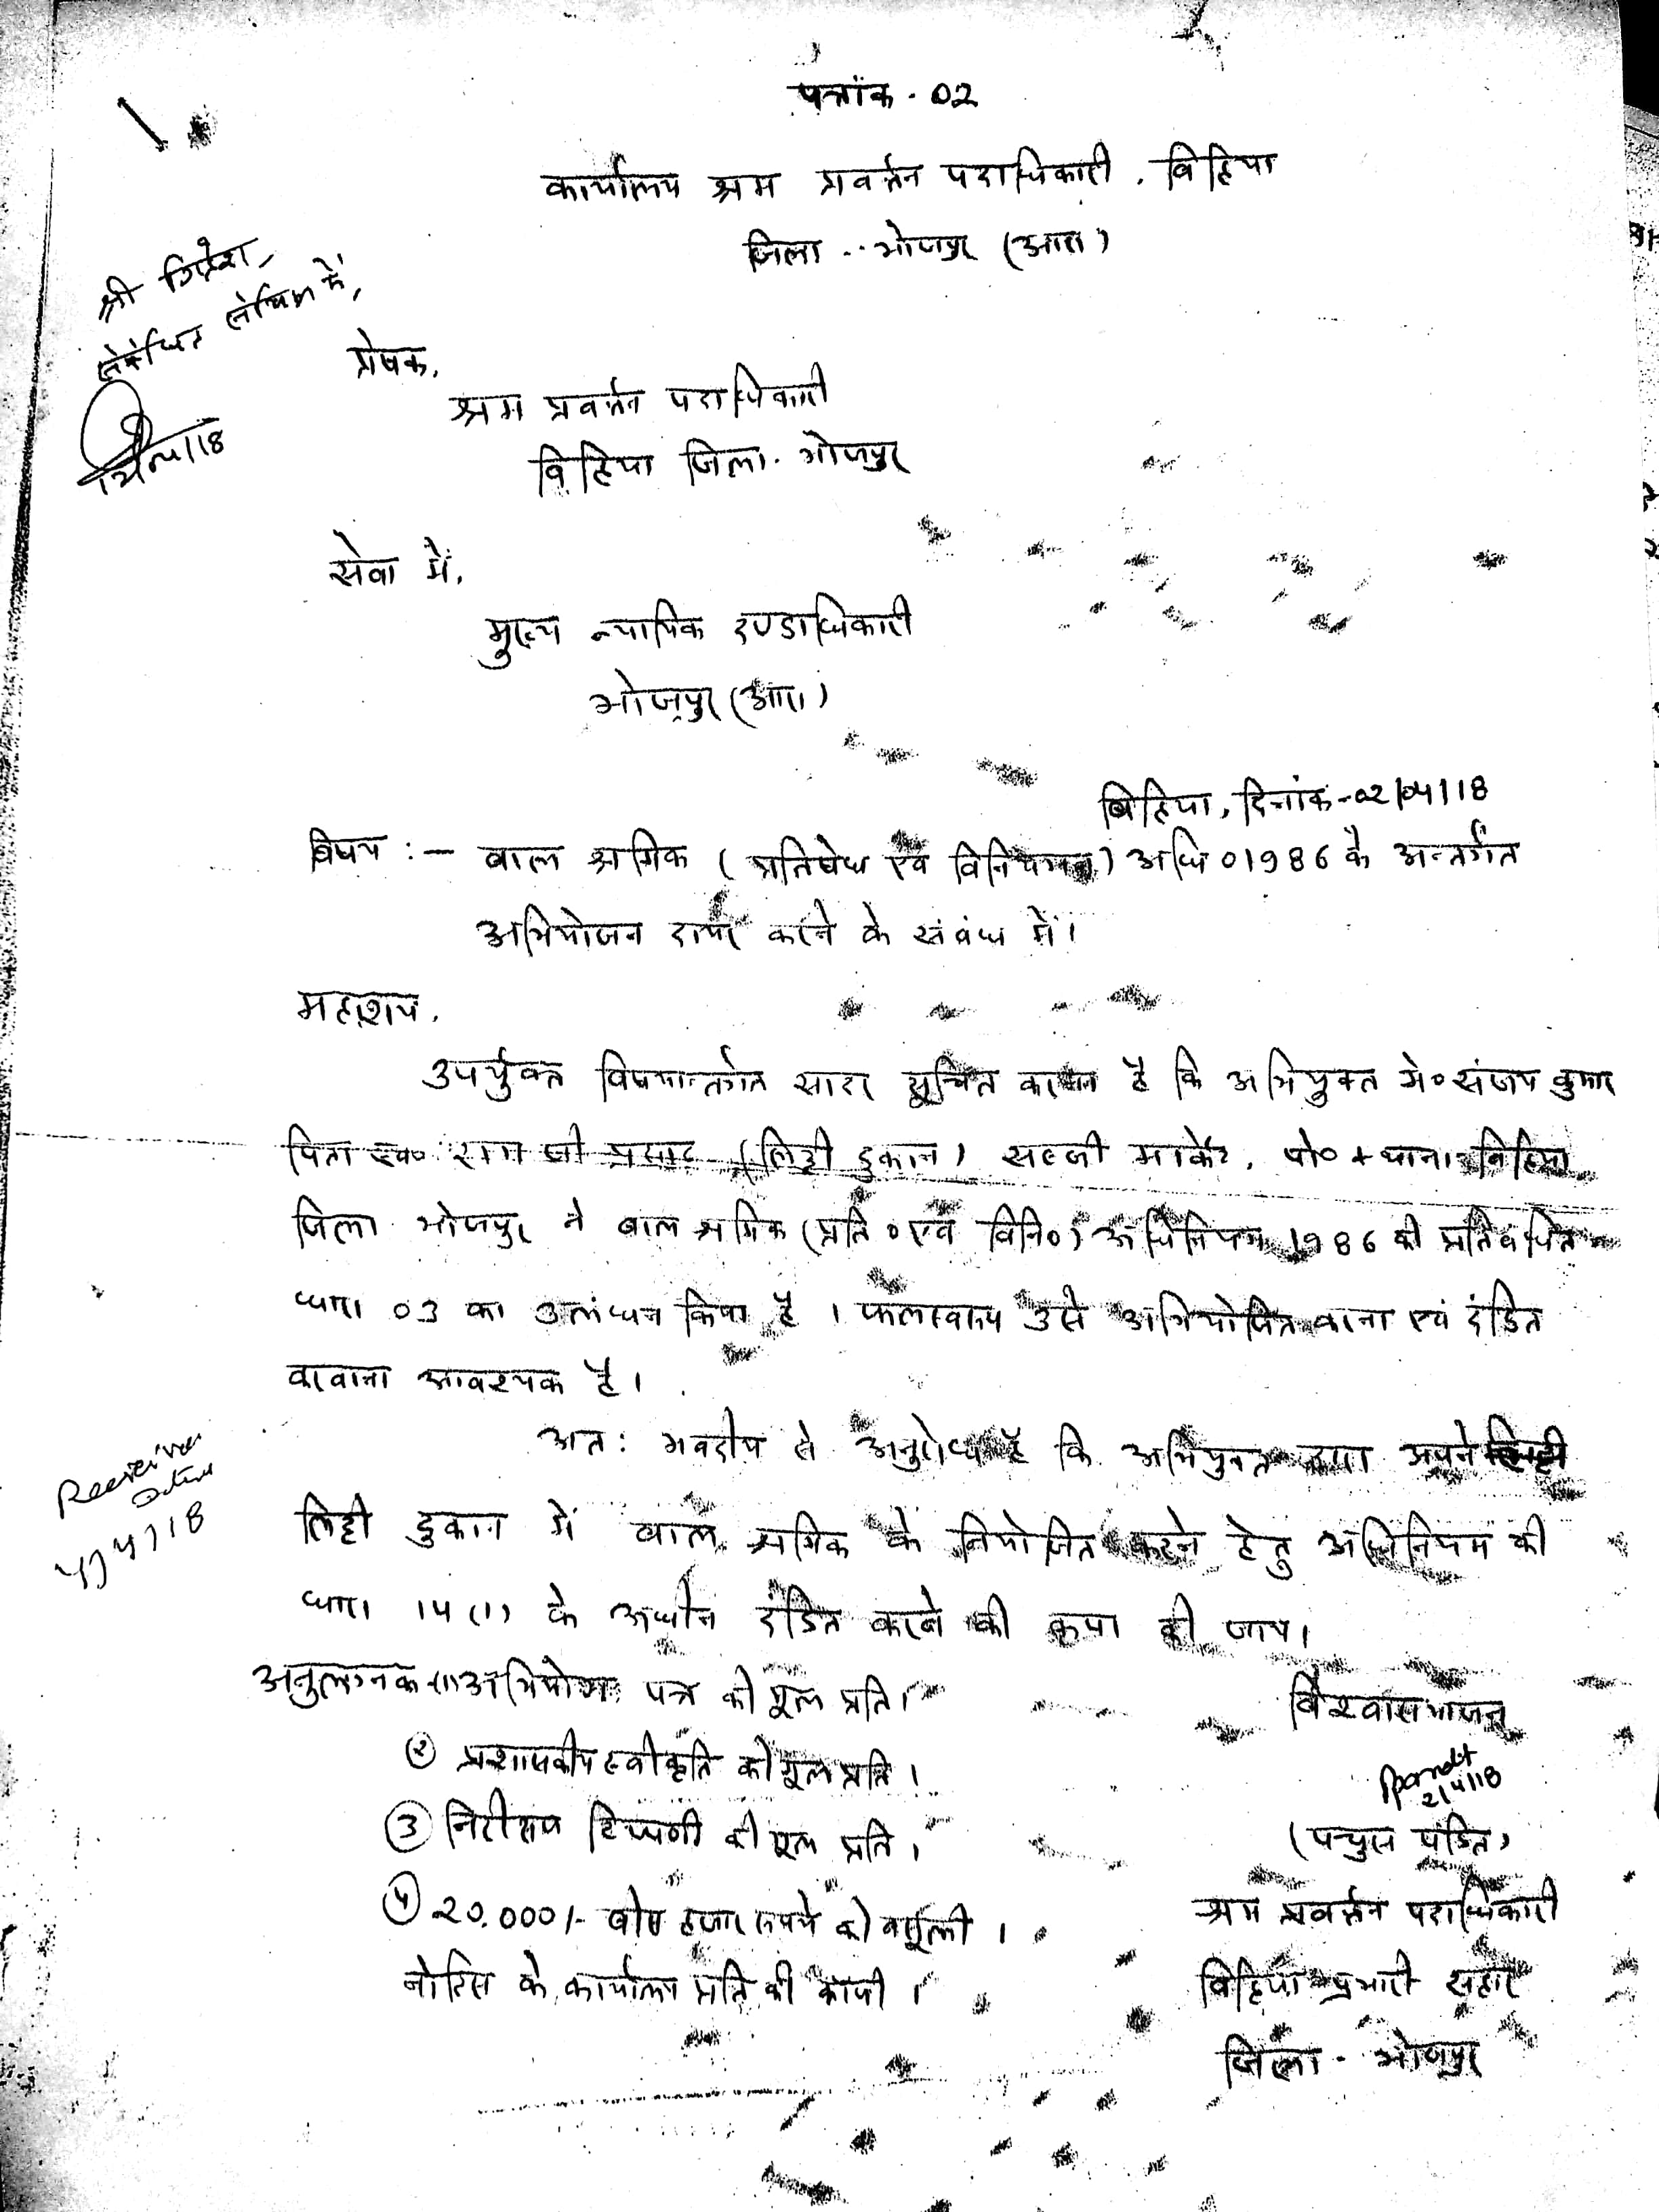 पत्रांक - 02
कार्यालय श्रम प्रवर्त्तन पदाधिकारी, बिहिया
जिला - भोजपुर (आरा)
श्री
में,
प्रेषक,
श्रम प्रवर्त्तन पदाधिकारी
बिहिया जिला - भोजपुर
सेवा में,
मुख्य न्यायिक दण्डाधिकारी
भोजपुर (आरा)
बिहिया, दिनांक - 02/04/18
विषय :- बाल श्रमिक (प्रतिषेध एवं विनियमन) अधि० 1986 के अन्तर्गत
अभियोजन दायर करने के संबंध में।
महाशय,
उपर्युक्त विषयान्तर्गत सादर सूचित करना है कि अभियुक्त मे० संजय कुमार
पिता स्व० राम जी प्रसाद (लिट्टी दुकान) सब्जी मार्केट, पो० + थाना - बिहिया
जिला - भोजपुर ने बाल श्रमिक (प्रति० एवं विनि०) अधिनियम 1986 की प्रतिबंधित
धारा 03 का उलंघन किया है। फलस्वरूप उसे अभियोजित करना एवं दंडित
करवाना आवश्यक है।
अत: भवदीय से अनुरोध है कि अभियुक्त द्वारा अपने
लिट्टी दुकान में बाल श्रमिक के नियोजित करने हेतु अधिनियम की
धारा 14(1) के अधीन दंडित करने की कृपा की जाय।
4/4/18
अनुलग्नक (1) अभियोग पत्र की मूल प्रति।
② प्रशासकीय स्वीकृति की मूल प्रति।
③ निरीक्षण टिप्पणी की मूल प्रति।
④ 20,000/- बीस हजार रूपये की वसूली
नोटिस के कार्यालय प्रति की कॉपी।
विश्वासभाजन
2/4/18
पंडित)
श्रम प्रवर्त्तन पदाधिकारी
बिहिया प्रभारी सहार
जिला - भोजपुर